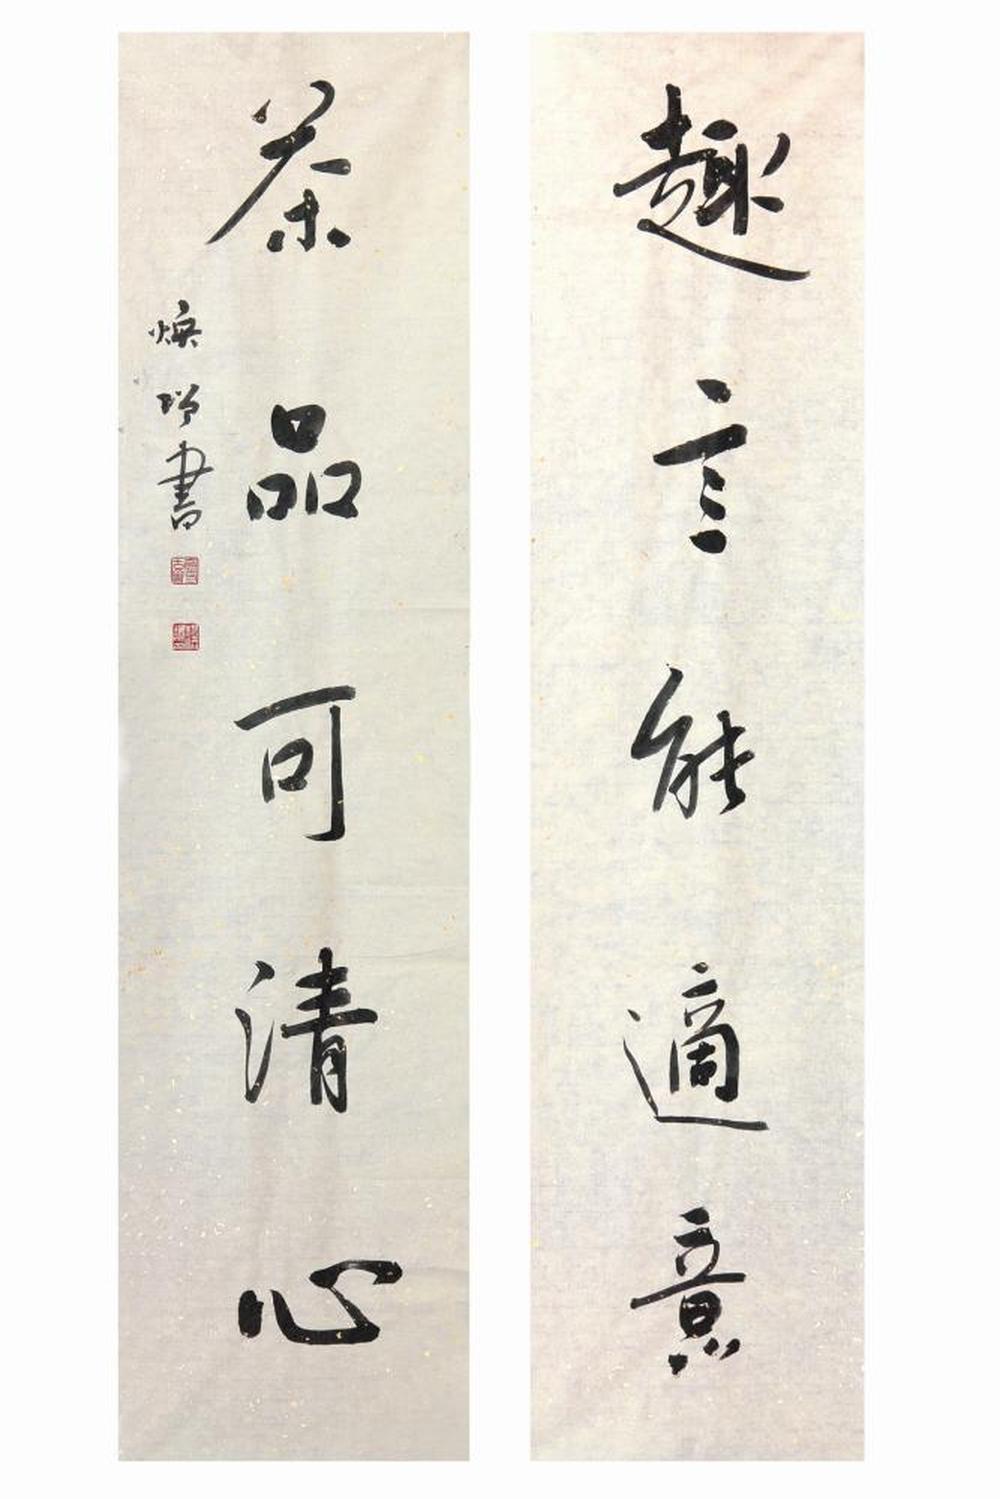 趣言能適意
茶品可清心
煥 書